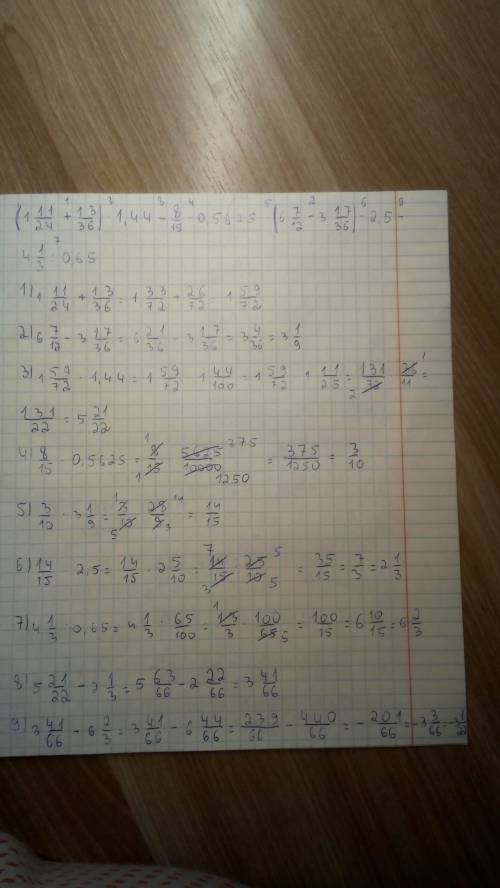 (1 11/24 + 13/36) 1,44 - 8/15 · 0,5625 (6 7/12 - 3 17/36) 2,5 -
4 1/3 0,65
1) 1 11/24 + 13/36 = 1 33/72 + 26/72 = 1 59/72
2) 6 7/12 - 3 17/36 = 6 21/36 - 3 17/36 = 3 4/36 = 3 1/9
3) 1 59/72 1,44 = 1 59/72 1 44/100 = 1 59/72 1 11/25 = 131/72 36/11 =
131/22 = 5 21/22
4) 8/15 · 0,5625 = 8/15 5625/10000 = 375/1250 = 3/10
5) 3/10 · 3 1/9 = 3/10 28/9 = 14/15
6) 14/15 2,5 = 14/15 · 2 5/10 = 14/15 · 25/10 = 35/15 = 7/3 = 2 1/3
7) 4 1/3 0,65 = 4 1/3 · 65/100 = 13/3 · 100/65 = 100/15 = 6 10/15 = 6 2/3
8) 5 21/22 - 2 1/3 = 5 63/66 - 2 22/66 = 3 41/66
9) 3 41/66 - 6 2/3 = 3 41/66 - 6 44/66 = 239/66 - 440/66 = - 201/66 = -3 3/66 = -3 1/22